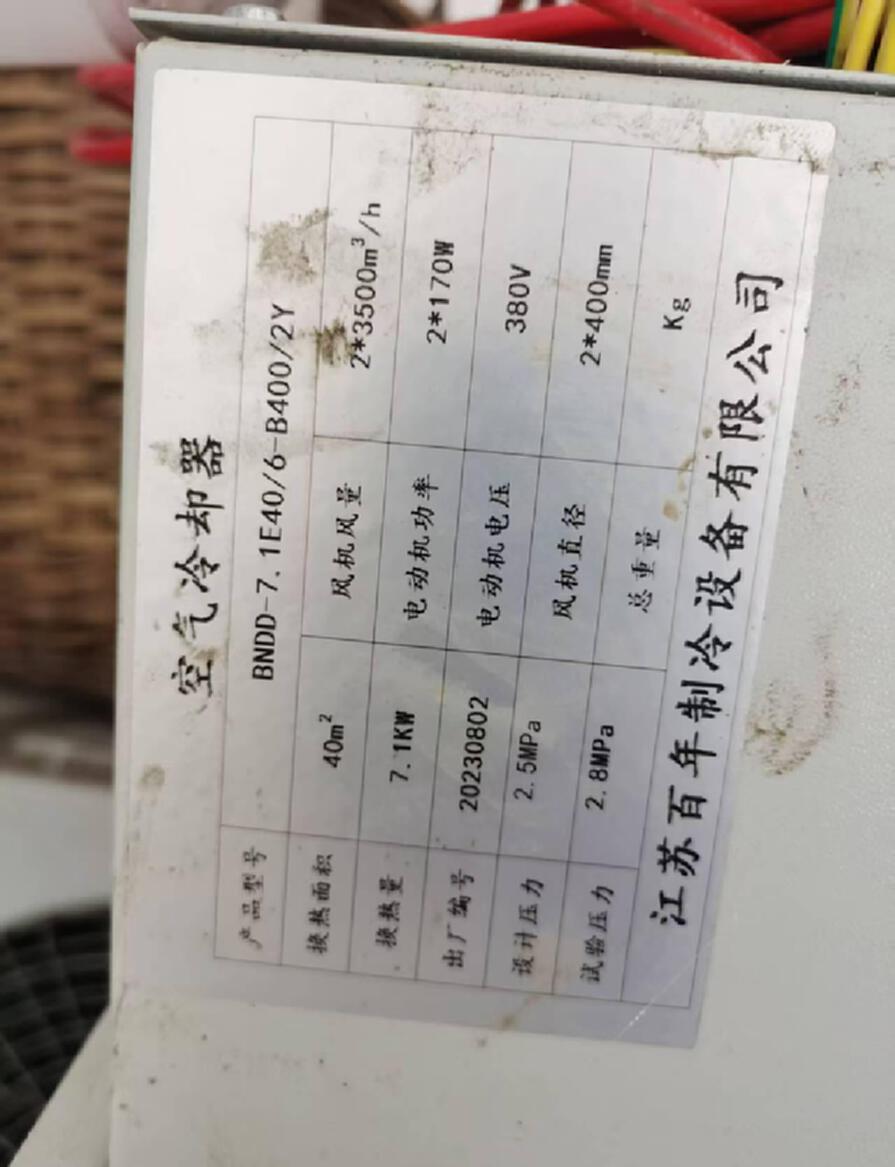 空气冷却器
产品型号 BNDD-7.1E40/6-B400/2Y
换热面积 40m² 风机风量 2*3500m³/h
换热量 7.1KW 电动机功率 2*170W
出厂编号 20230802 电动机电压 380V
设计压力 2.5MPa 风机直径 2*400mm
试验压力 2.8MPa 总重量 Kg
江苏百年制冷设备有限公司